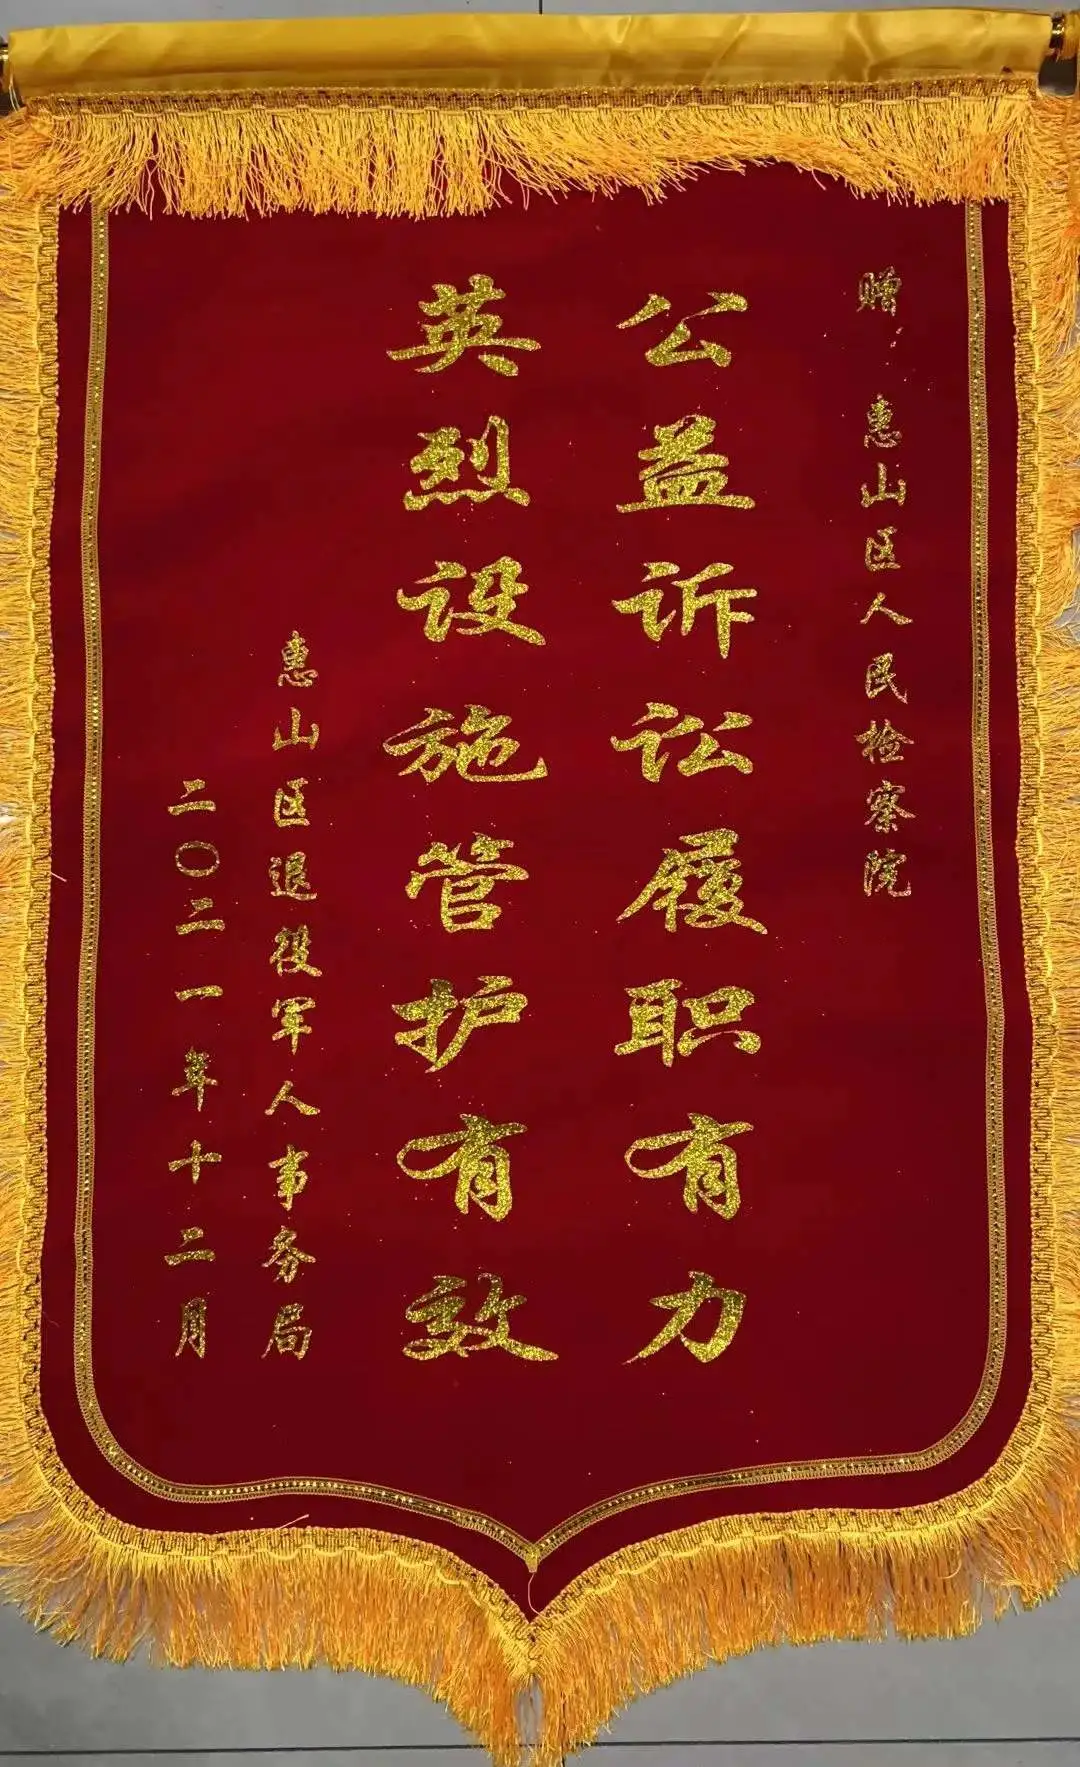 赠：惠山区人民检察院
公益诉讼履职有力
英烈设施管护有效
惠山区退役军人事务局
二〇二一年十二月